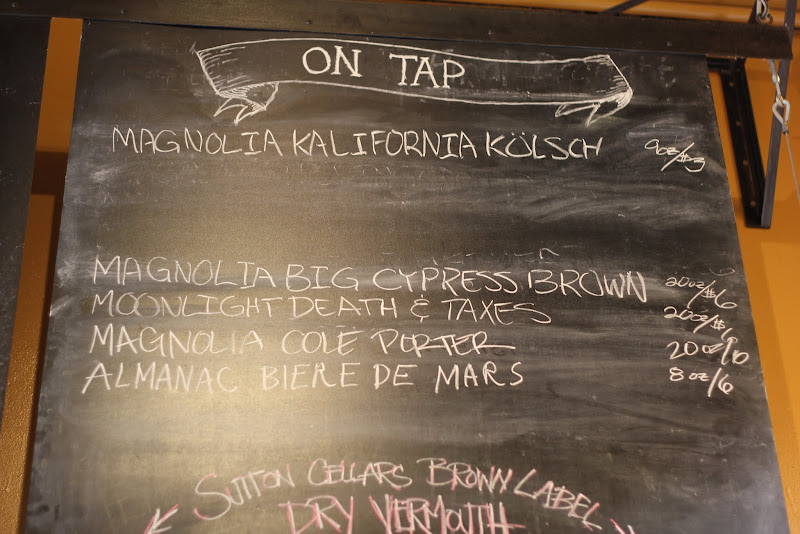 ON TAP
MAGNOLIA KALIFORNIA KÖLSCH 9oz/$3
MAGNOLIA BIG CYPRESS BROWN 20oz/$6
MOONLIGHT DEATH & TAXES 20oz/$6
MAGNOLIA COLE PORTER 20oz/
ALMANAC BIERE DE MARS 8oz/6
SUTTON CELLARS BROWN LABEL
DRY VERMOUTH